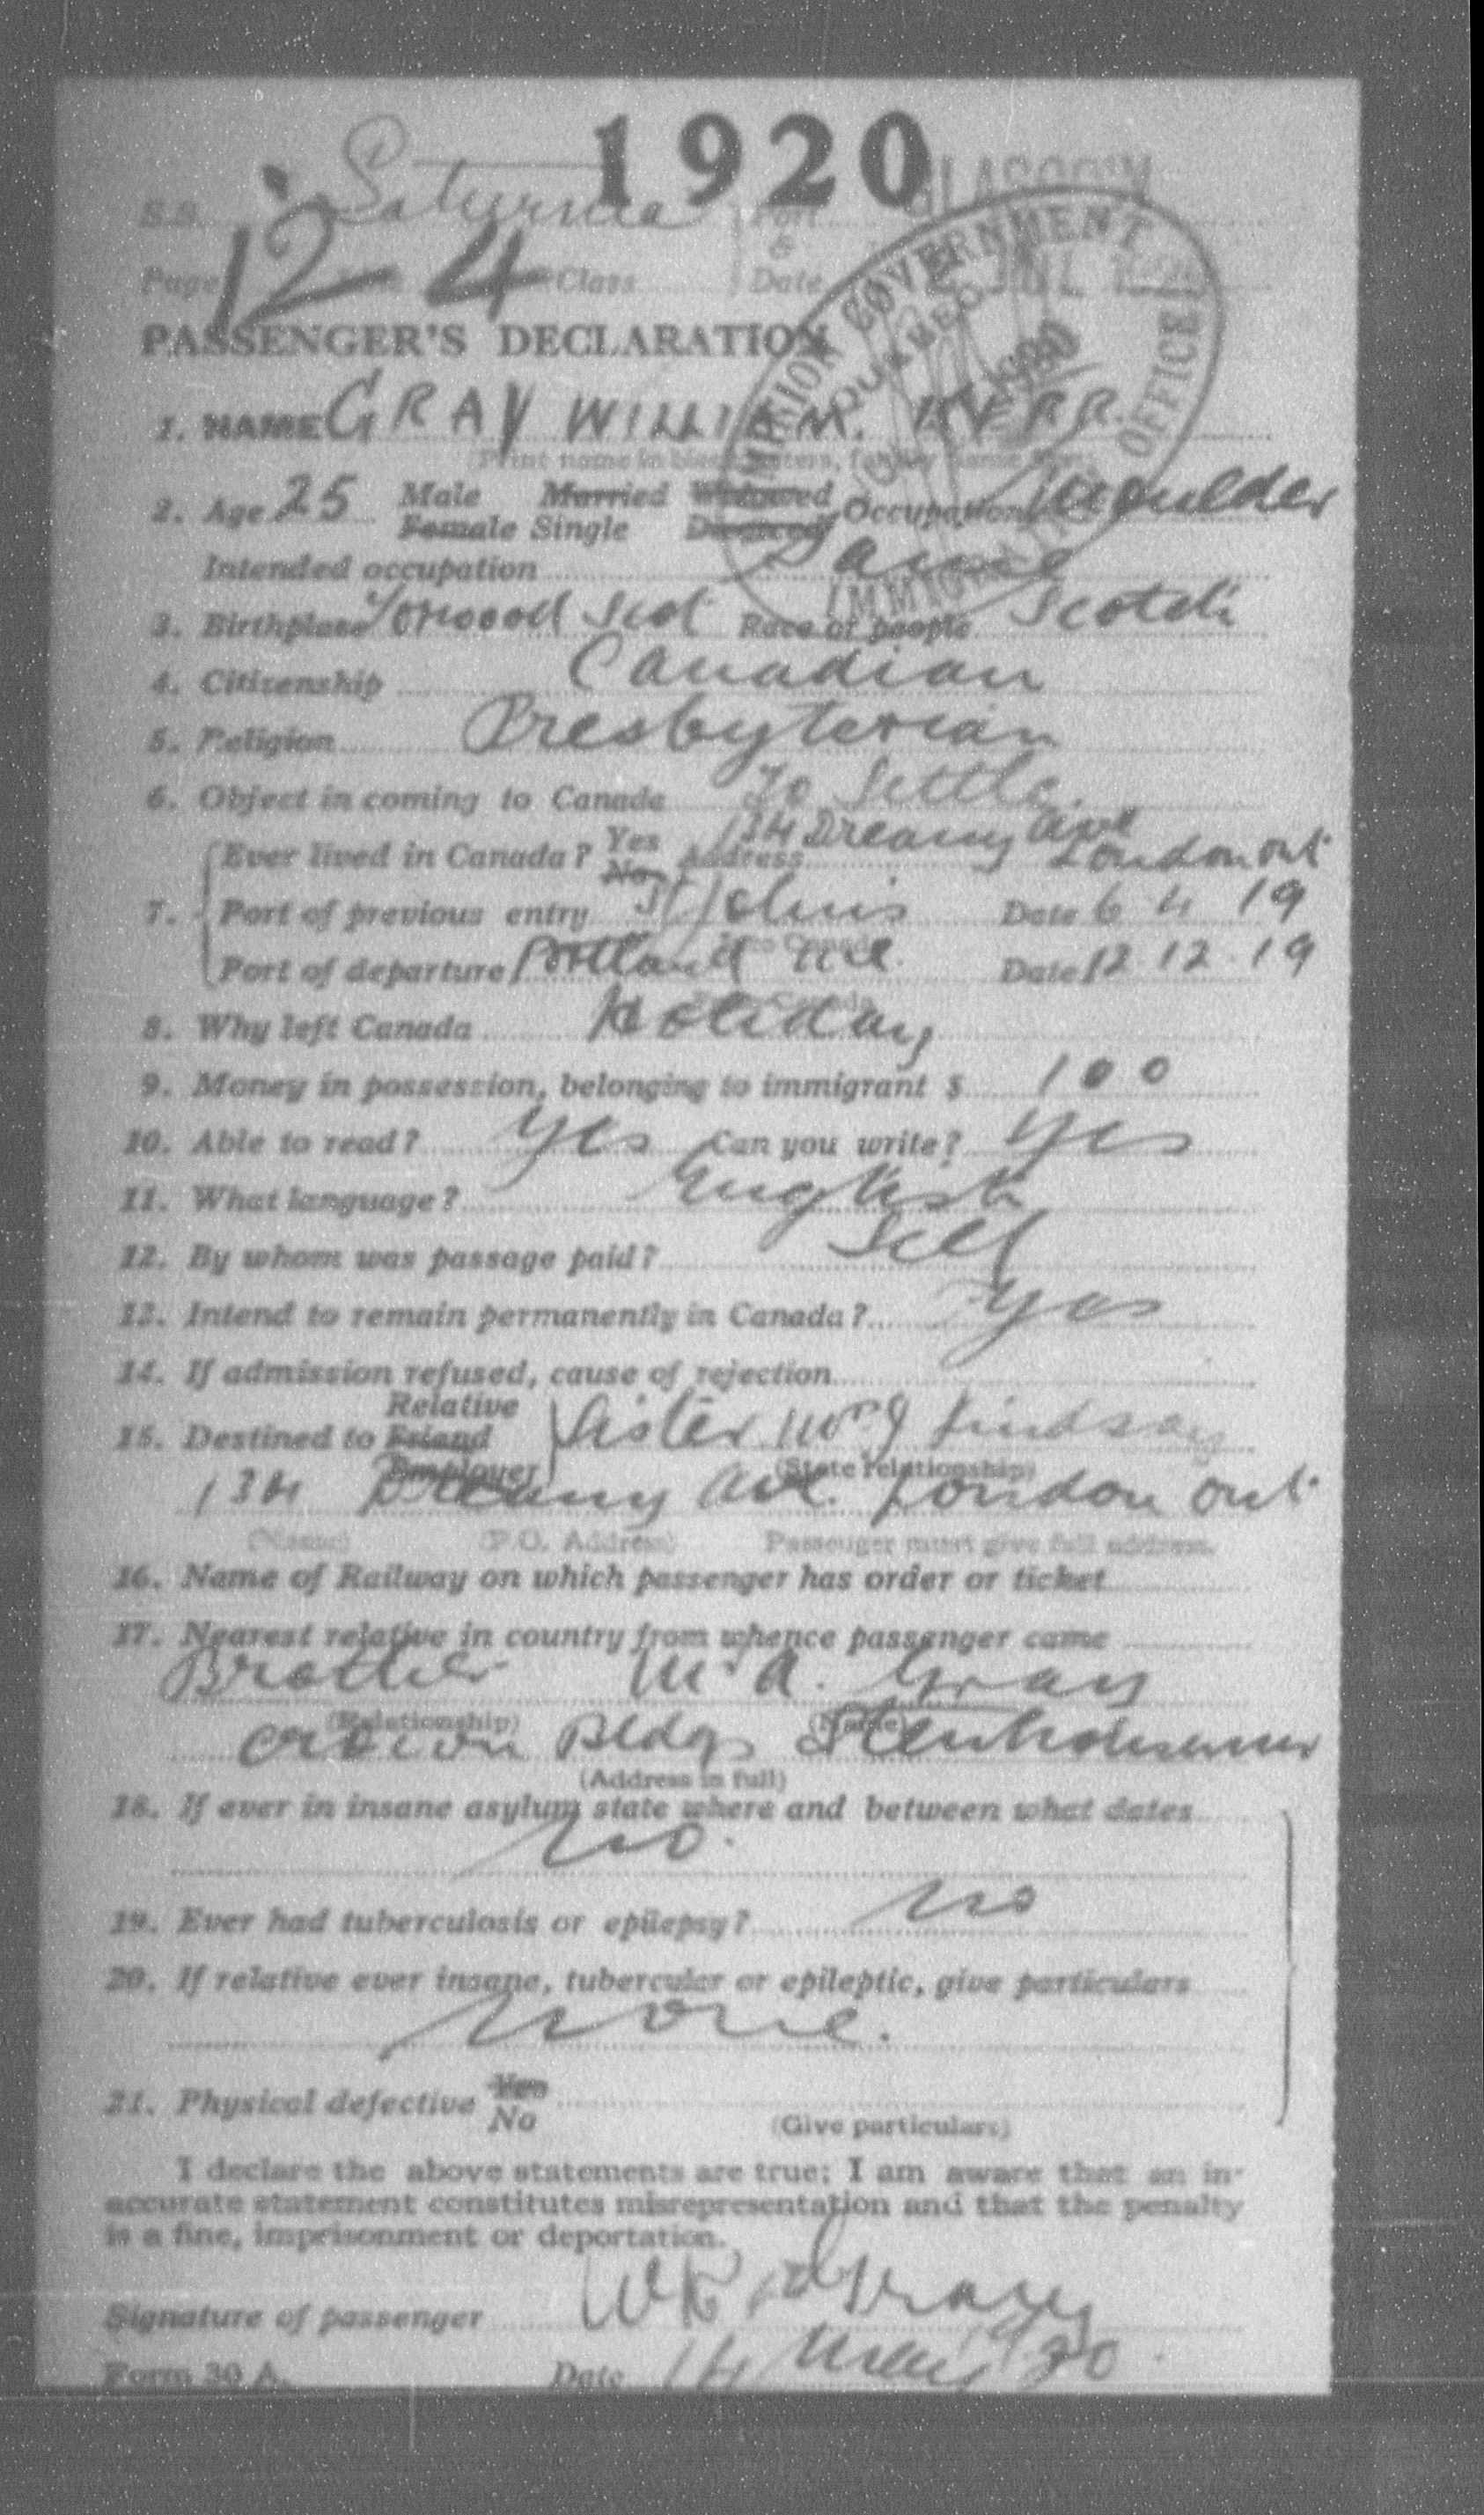 1920
S.S. Saturnia Port GLASGOW
&
Page 12 4 Class Date JUL 1920
DOMINION GOVERNMENT IMMIGRATION OFFICE QUEBEC 1920
PASSENGER'S DECLARATION
1. NAME GRAY WILLIAM. KERR
(Print name in block letters, family name first)
2. Age 25 Male Married Widowed Occupation Moulder
Female Single Divorced
Intended occupation Same
3. Birthplace Torwood Scot Race or people Scotch
4. Citizenship Canadian
5. Religion Presbyterian
6. Object in coming to Canada To Settle.
7. Ever lived in Canada? Yes No Address 134 Dreany Ave London ont
Port of previous entry St Johns Date 6 4 19
Into Canada
Port of departure Portland Me. Date 12 12 19
Canada
8. Why left Canada Holiday
9. Money in possession, belonging to immigrant $ 100
10. Able to read? yes Can you write? yes
11. What language? English
12. By whom was passage paid? Self
13. Intend to remain permanently in Canada? yes
14. If admission refused, cause of rejection
Relative
15. Destined to Friend Sister Mrs J Lindsay
Employer (State relationship)
134 Dreany Ave. London ont
(Name) (P.O. Address) Passenger must give full address.
16. Name of Railway on which passenger has order or ticket
17. Nearest relative in country from whence passenger came
Brother Mr A. Gray
(Relationship) (Name)
Bldgs Stenhousemuir
(Address in full)
18. If ever in insane asylum state where and between what dates
no.
19. Ever had tuberculosis or epilepsy? no
20. If relative ever insane, tubercular or epileptic, give particulars
none.
21. Physical defective Yes
No (Give particulars)
I declare the above statements are true; I am aware that an in-
accurate statement constitutes misrepresentation and that the penalty
is a fine, imprisonment or deportation.
Signature of passenger W K Gray
Form 30 A. Date 14 May 20